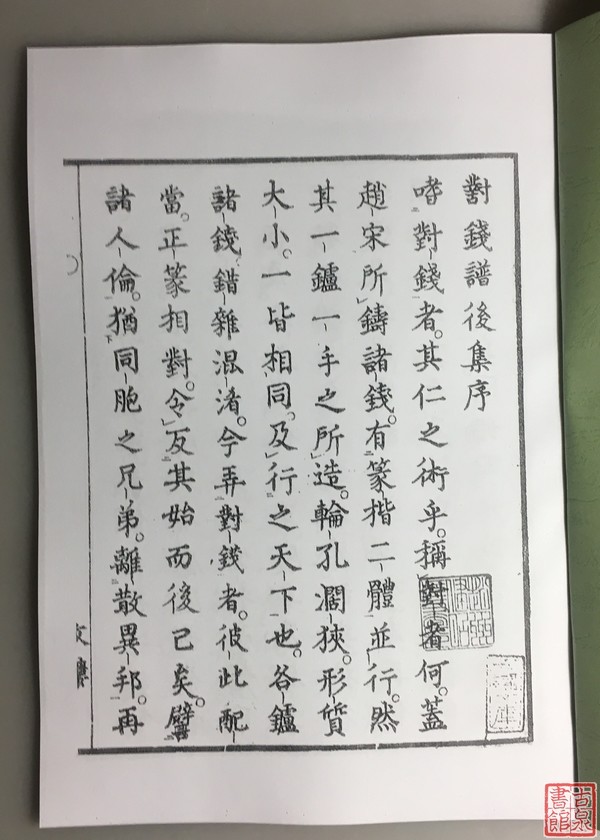 對錢譜後集序
嗜對錢者。其仁之術乎。稱對者何。蓋
趙宋所鑄諸錢。有篆楷二體並行。然
其一鑪一手之所造。輪孔濶狹。形質
大小。一皆相同。及行之天下也。各鑪
諸錢錯雜混淆。今弄對錢者。彼此配
當。正篆相對。令反其始而後已矣。譬
諸人倫。猶同胞之兄弟。離散異邦。再
古泉書館